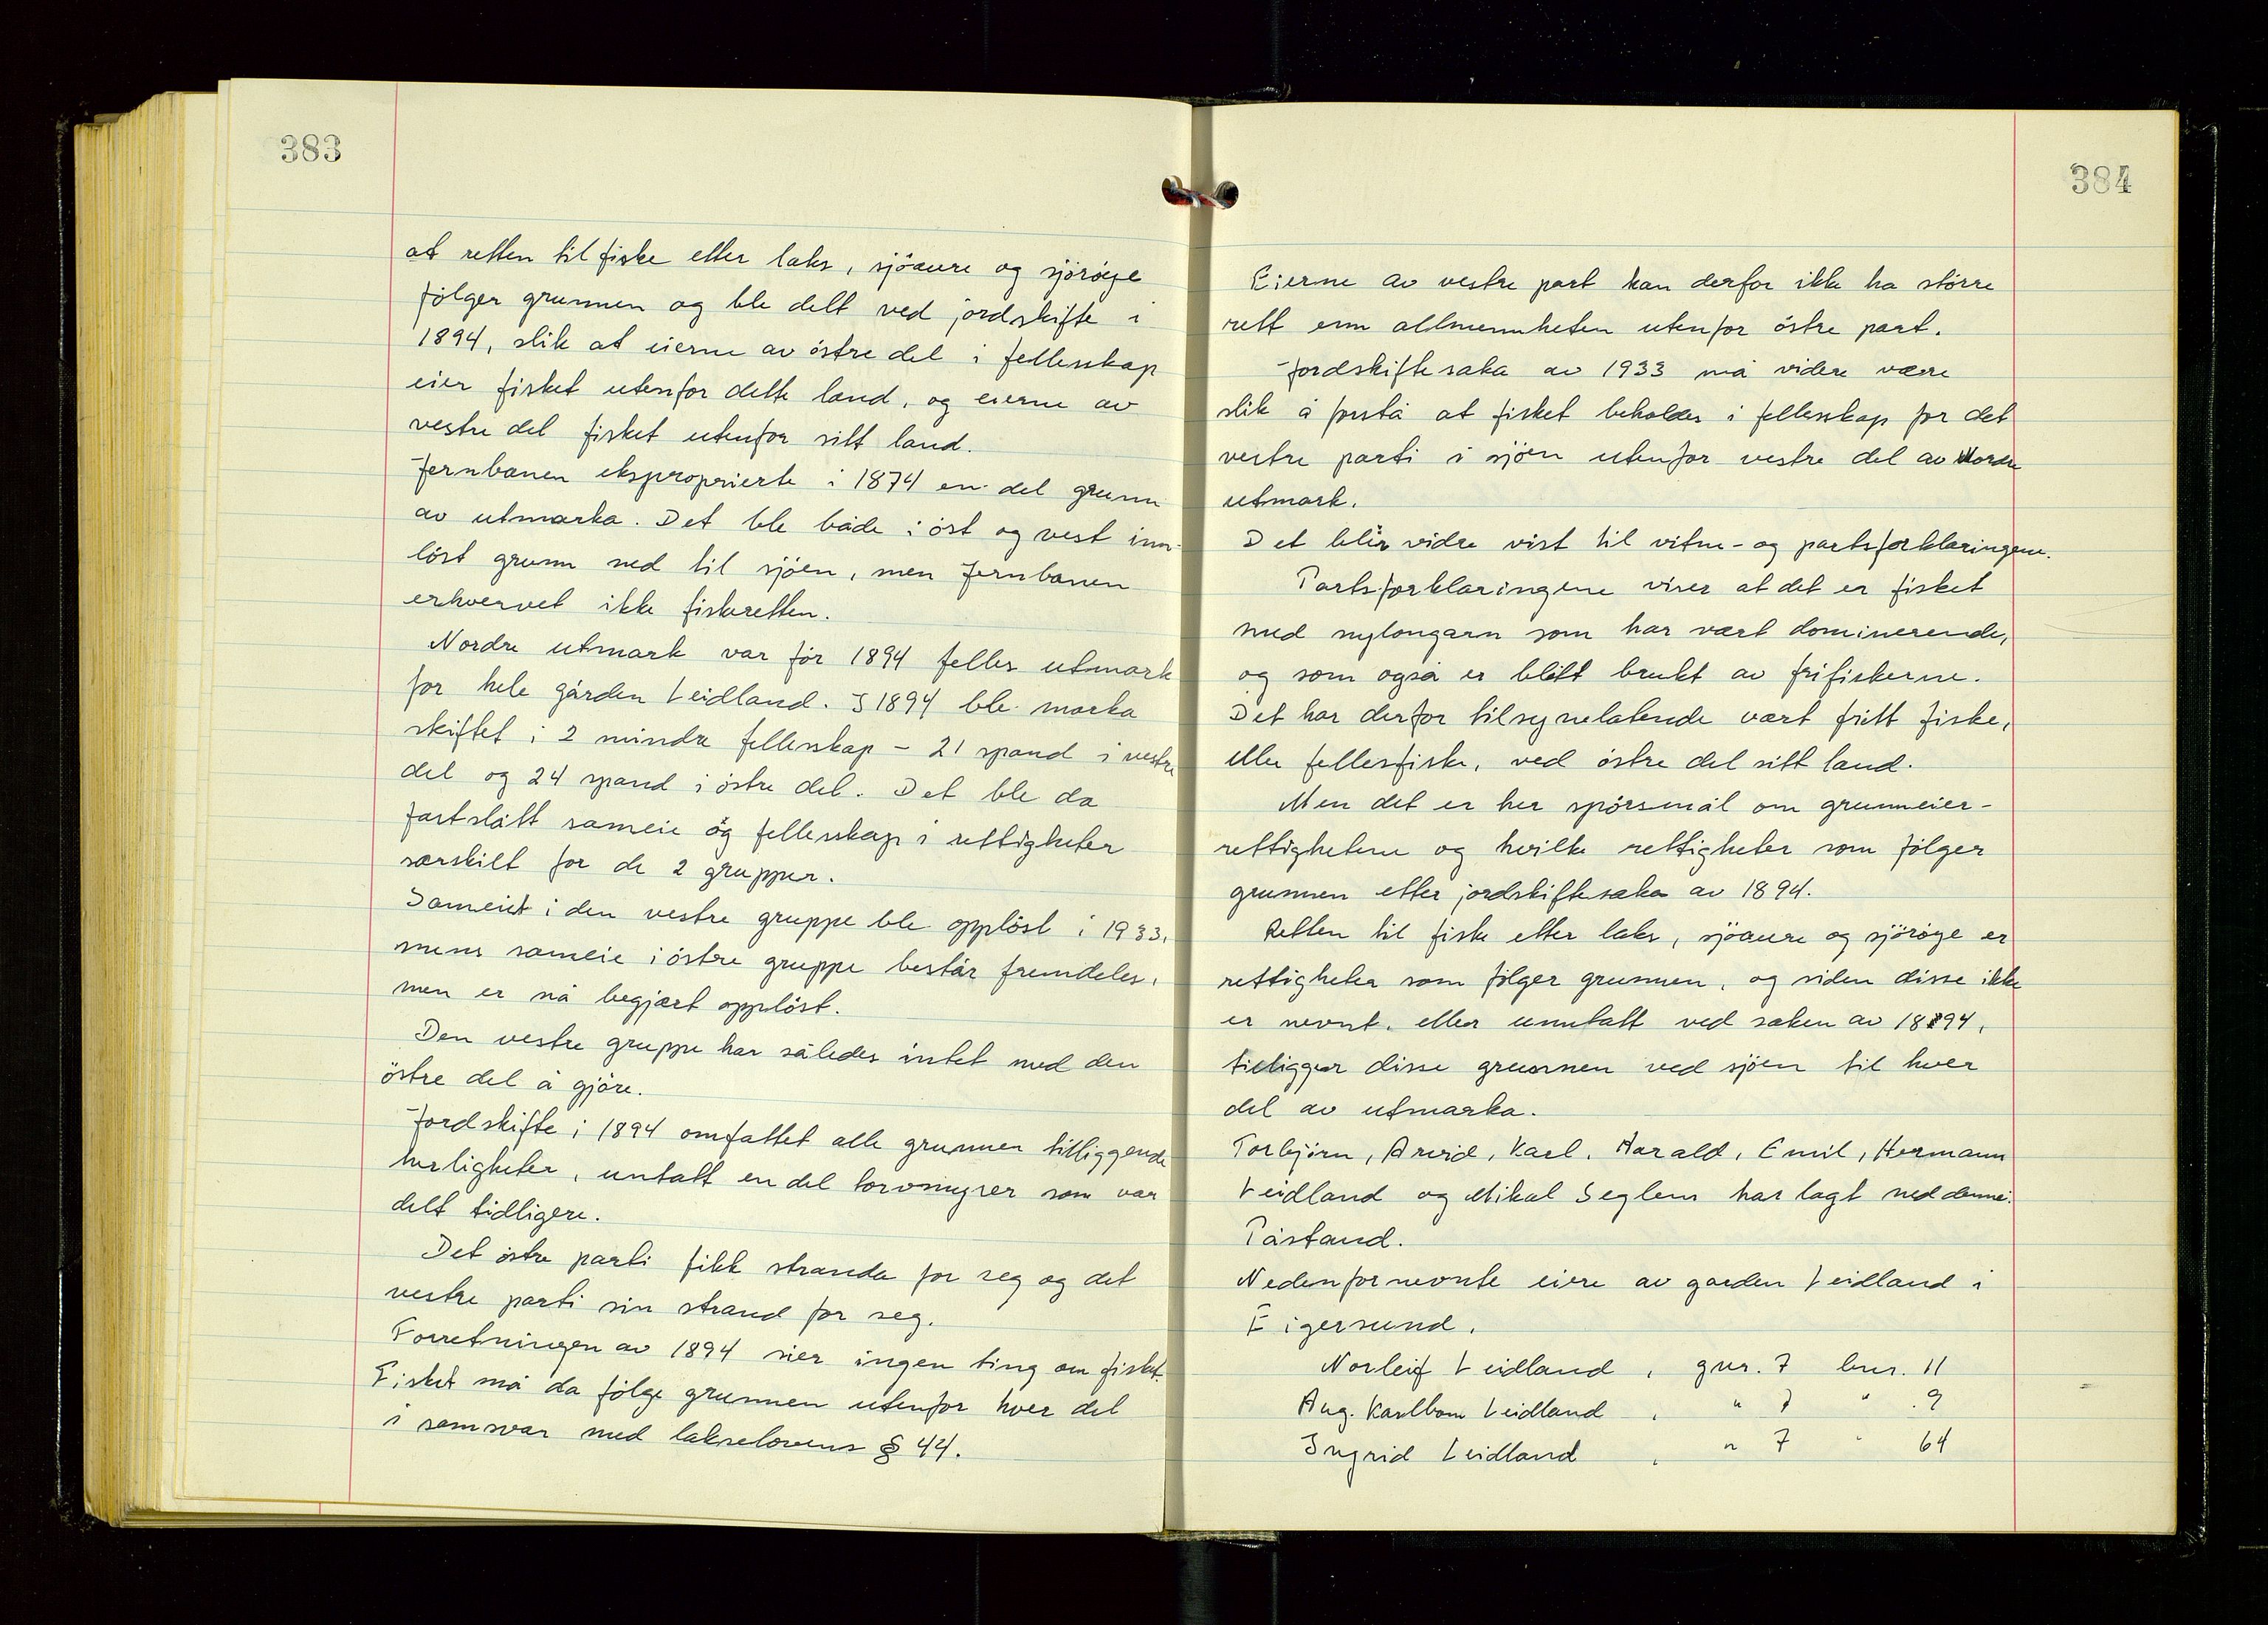 383
at retten til fiske etter laks, sjöaure og sjöröye
fölger grunnen og ble delt ved jordskifte i
1894, slik at eierne av östre del i fellesskap
eier fisket utenfor dette land, og eierne av
vestre del fisket utenfor sitt land.
Jernbanen eksproprierte i 1874 en del grunn
av utmarka. Det ble både i öst og vest inn-
löst grunn ned til sjöen, men Jernbanen
erhvervet ikke fiskeretten.
Nordre utmark var för 1894 felles utmark
for hele gården Leidland. I 1894 ble marka
skiftet i 2 mindre fellesskap - 21 spand i vestre
del og 24 spand i östre del. Det ble da
fastslått sameie og fellesskap i rettigheter
særskilt for de 2 grupper.
Sameiet i den vestre gruppe ble opplöst i 1933,
mens sameie i östre gruppe består fremdeles,
men er nå begjært opplöst.
Den vestre gruppe har således intet med den
östre del å gjöre.
Jordskifte i 1894 omfattet alle grunnen tilliggende
herligheter, untatt en del torvmyrer som var
delt tidligere.
Det östre parti fikk stranda for seg og det
vestre parti sin strand for seg.
Forretningen av 1894 sier ingen ting om fisket.
Fisket må da fölge grunnen utenfor hver del
i samsvar med lakselovens § 44.
384
Eierne av vestre part kan derfor ikke ha större
rett enn allmennheten utenfor östre part.
Jordskiftesaka av 1933 må videre være
slik å forstå at fisket beholdes i fellesskap for det
vestre parti i sjöen utenfor vestre del av Nordre
utmark.
Det blir vidre vist til vitne- og partsforklaringene.
Partsforklaringene viser at det er fisket
med nylongarn som har vært dominerende,
og som også er blitt brukt av frifiskerne.
Det har derfor tilsynelatende vært fritt fiske,
eller fellesfiske, ved östre del sitt land.
Men det er her spörsmål om grunneier-
rettighetene og hvilke rettigheter som fölger
grunnen etter jordskiftesaka av 1894.
Retten til fiske etter laks, sjöaure og sjöröye er
rettigheter som fölger grunnen, og siden disse ikke
er nevnt, eller unntatt ved saken av 1894,
tilligger disse grunnen ved sjöen til hver
del av utmarka.
Torbjörn, Arvid, Karl, Harald, Emil, Hermann
Leidland og Mikal Seglem har lagt ned denne:
Påstand.
Nedenfornevnte eiere av garden Leidland i
Eigersund.
Norleif Leidland, gnr. 7 bnr. 11
Aug. Karlbom Leidland, " 7 " 9
Ingrid Leidland, " 7 " 64